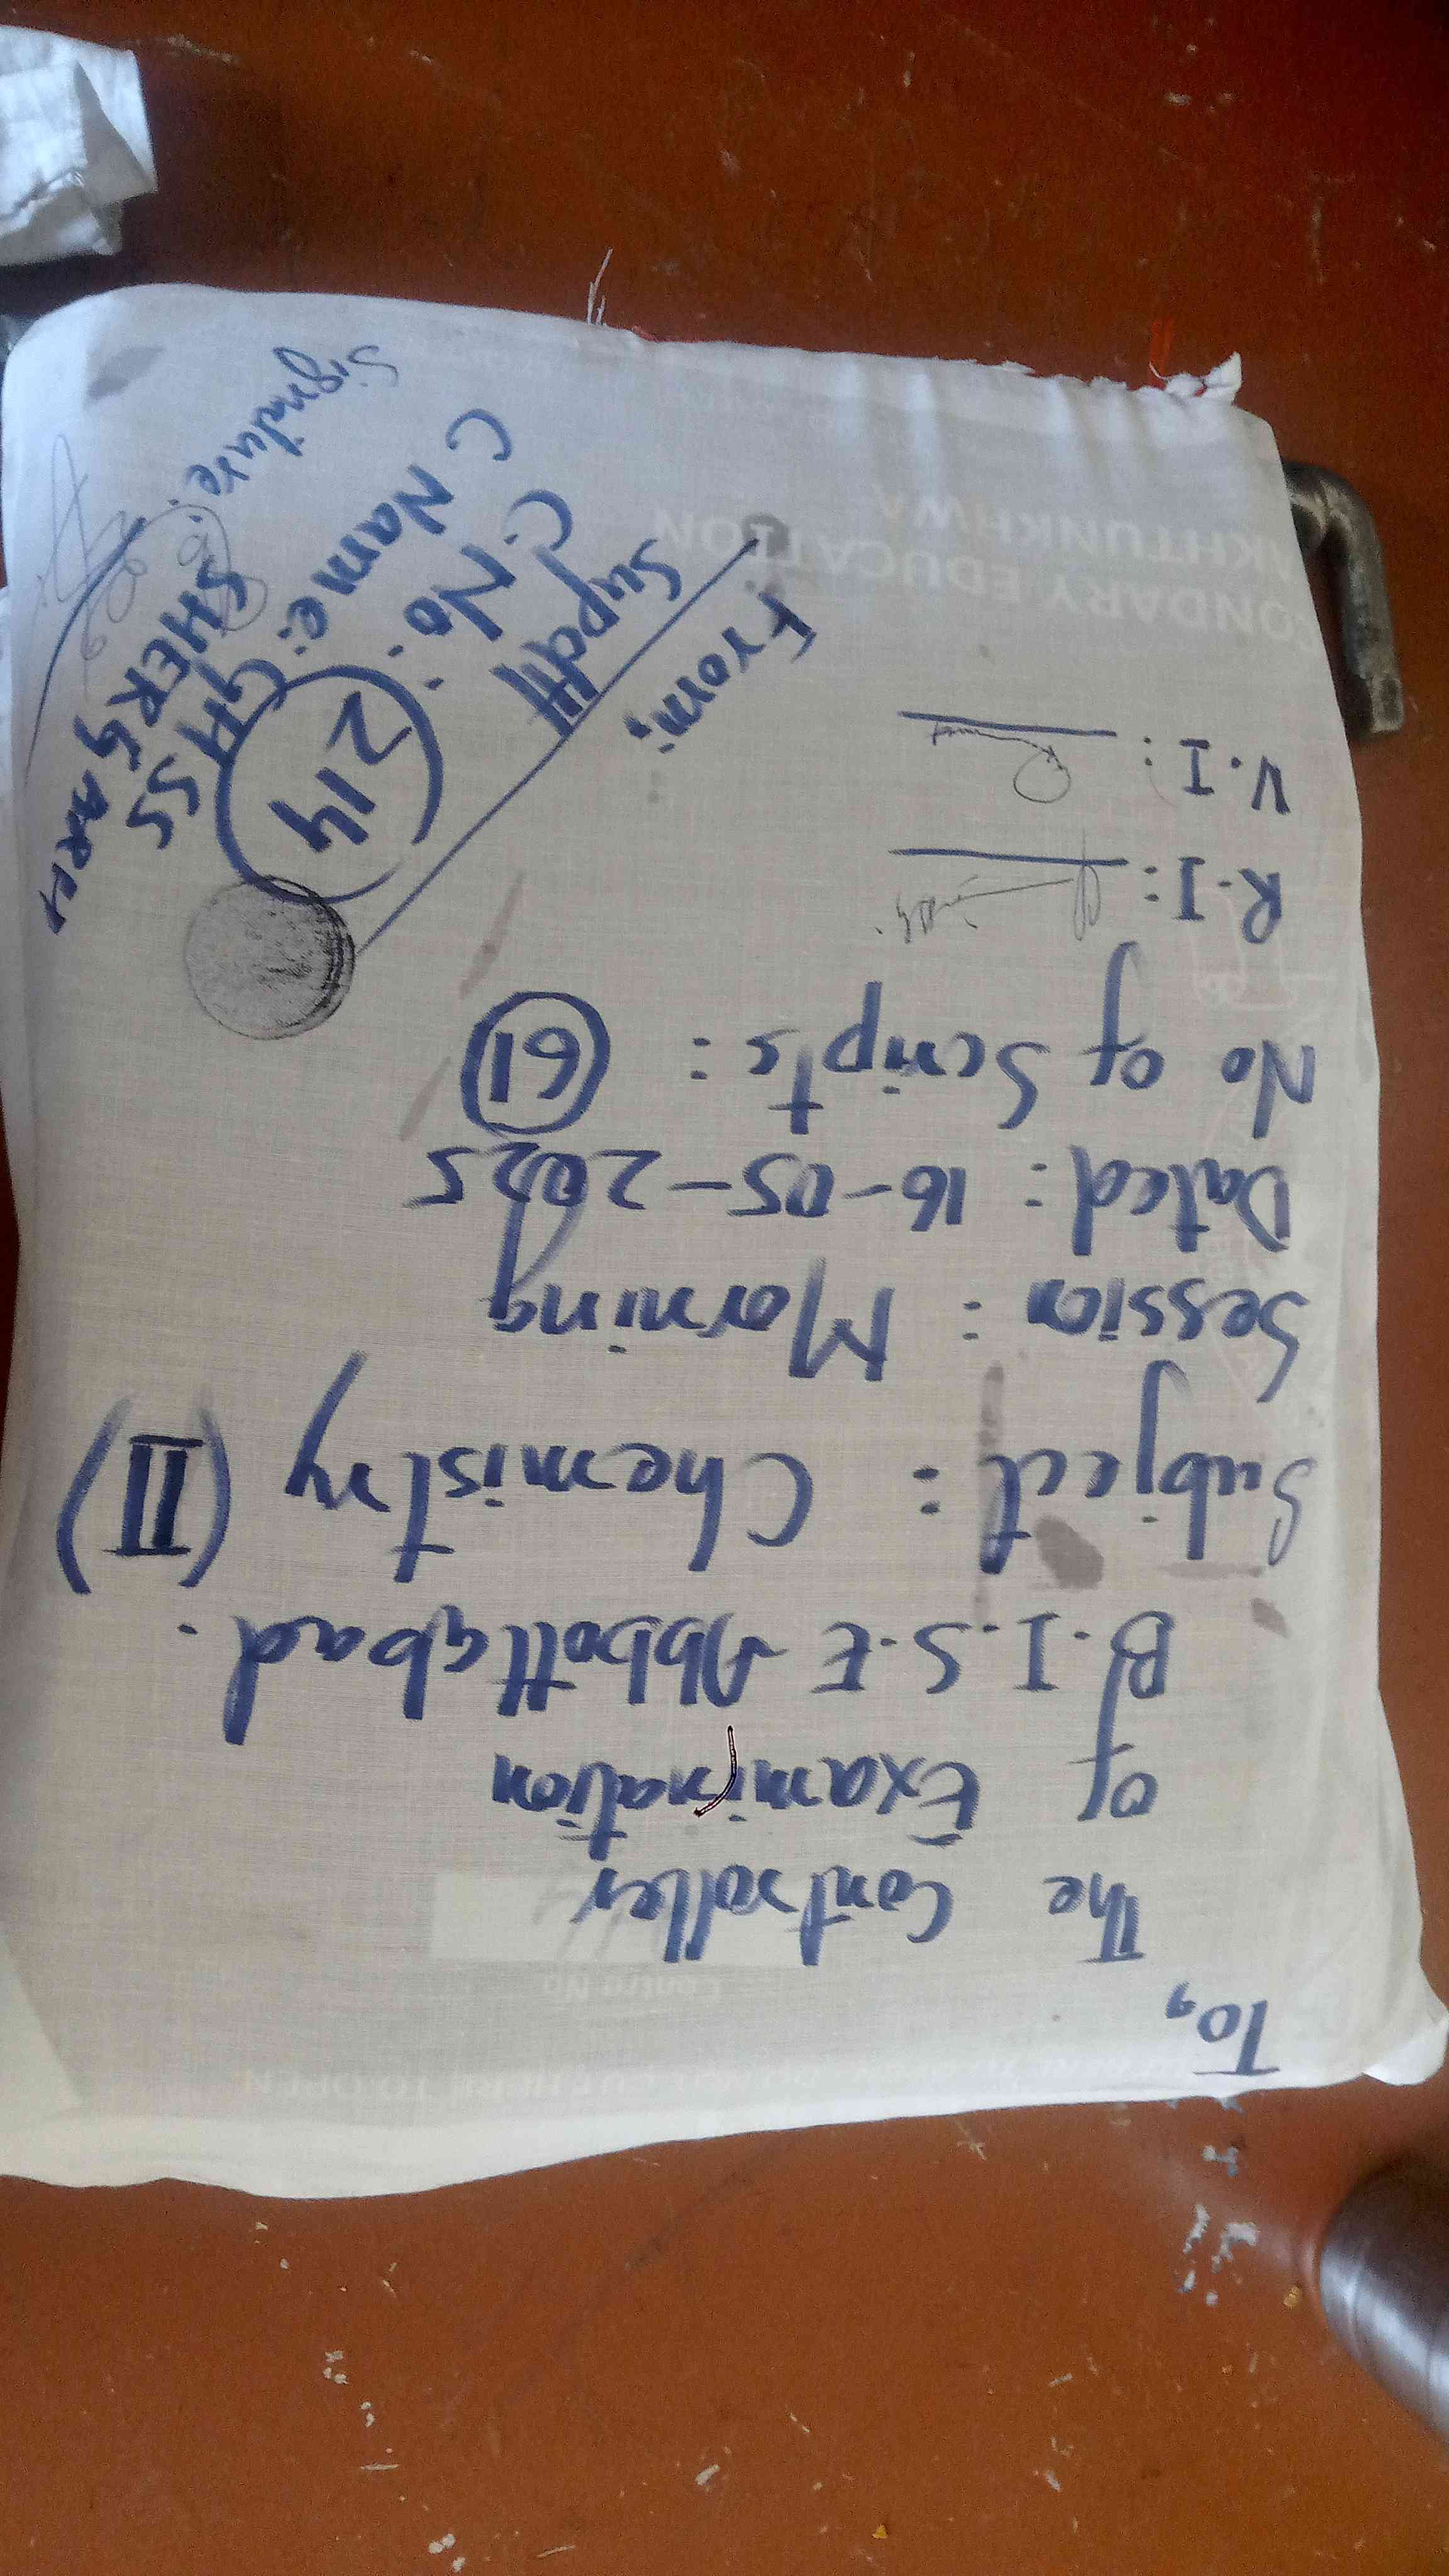 To,
The Controller
of Examination
B.I.S.E Abbottabad.
Subject : Chemistry (II)
Session : Morning
Dated : 16-05-2025
No of Scripts : 61
R.I :
V.I :
From,
Supdtt
C.No : 214
C Name : GHSS
SHERGARH
Signature :
CUT HERE TO OPEN
ONDARY EDUCATION
KHTUNKHWA